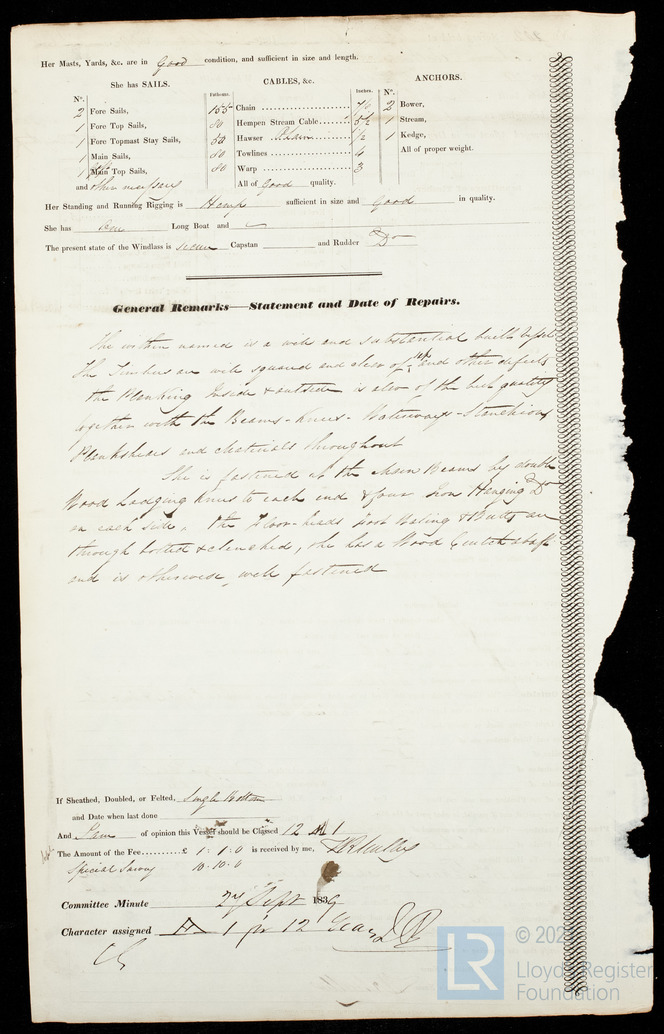 Her Masts, Yards, &c. are in Good condition, and sufficient in size and length.
She has SAILS.
CABLES, &c.
ANCHORS.
Nº.
Fathoms.
Inches.
Nº.
2 Fore Sails,
1 Fore Top Sails,
1 Fore Topmast Stay Sails,
1 Main Sails,
1 Main Top Sails,
and other necessary
155 Chain 
80 Hempen Stream Cable
Hawser
80 Towlines 4
80 Warp 3
All of Good quality.
2 Bower,
1 Stream,
1 Kedge,
All of proper weight.
Her Standing and Running Rigging is Hemp sufficient in size and Good in quality.
She has Long Boat and
The present state of the Windlass is Capstan and Rudder Do
General Remarks—Statement and Date of Repairs.
The within named is a well and substantial built Vessel
The Timbers are well squared and clear of sap and other defects
the Planking Inside & outside is also of the best quality
together with the Beams - Knees - Waterways - Stanchions
Planksheers and materials throughout
She is fastened at the Main Beams by double
Wood Lodging Knees to each end & four Iron Hanging Do
on each side. The Floor-heads & Butts are
through bolted & clenched, she has a Wood Crutch abaft
and is otherwise well fastened
If Sheathed, Doubled, or Felted, Single Bottom
and Date when last done
And I am of opinion this Vessel should be Classed 12 A 1
The Amount of the Fee..........£ 1 : 1 : 0 is received by me,
Special Survey 10 : 10 : 0
Committee Minute 2nd Sept 1839
Character assigned A 1 for 12 Years
LR
© 202
Lloyd's Register
Foundation